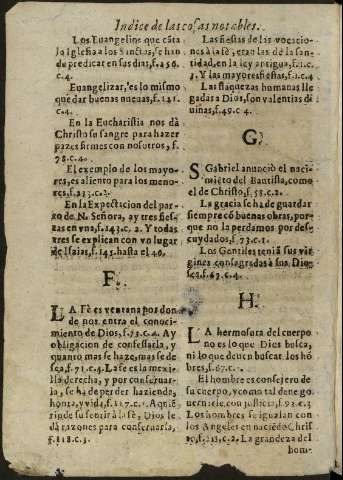 Indice de las cosas notables.
Los Euangelios que cãta
la Iglesia a los Sanctos, se han
de predicar en sus dias, f.256.
c.4.
Euangelizar, es lo mismo
que dar buenas nueuas, f.141.
c.4.
En la Eucharistia nos dà
Christo su sangre para hazer
pazes firmes con nosotros, f.
78.c.4.
El exemplo de los mayo-
res, es aliento para los meno-
res, f.233.c.2.
En la Expectacion del par-
to de N. Señora, ay tres fies-
tas en vna, f.143.c.2. Y todas
tres se explican con vn lugar
de Isaias, f.145. hasta el 49.
F.
LA Fè es ventana por don
de nos entra el conoci-
miento de Dios, f.73.c.4. Ay
obligacion de confessarla, y
quanto mas se haze, mas se de-
sea, f.71.c.4. La fe es la mexi-
lla derecha, y por conseruar-
la, se ha de perder hazienda,
honra, y vida, f.117.c.1. A quiẽ
rinde su sentir à la fè, Dios le
dà razones para conseruarla,
f.118.c.3.
Las fiestas de las vaca-
ciones à la fè, eran las de la san-
tidad, en la ley antigua, f.1.c.
3. Y las mayores fiestas, f.1.c.4
Las flaquezas humanas lle
gadas a Dios, son valentias di
uinas, f.49.c.4.
G.
S Gabriel anunciò el naci-
miẽto del Bautista, como
el de Christo, f.58.c.2.
La gracia se ha de guardar
siempre cõ buenas obras, por-
que no la perdamos por des-
cuydados, f.73.c.1.
Los Gentiles teniã sus vir-
gines consagradas à sus Dio-
ses, f.63.c.4.
H.
LA hermosura del cuerpo
no es lo que Dios busca,
ni lo que deuẽ buscar los hõ
bres, f.67.c.1.
El hombre es consejero de
su cuerpo, y como tal deue go-
uernarle con justicia, f.93.c.3
Los hombres se igualan con
los Angeles en naciẽdo Chris
to, f.213.c.2. La grandeza del
hom-